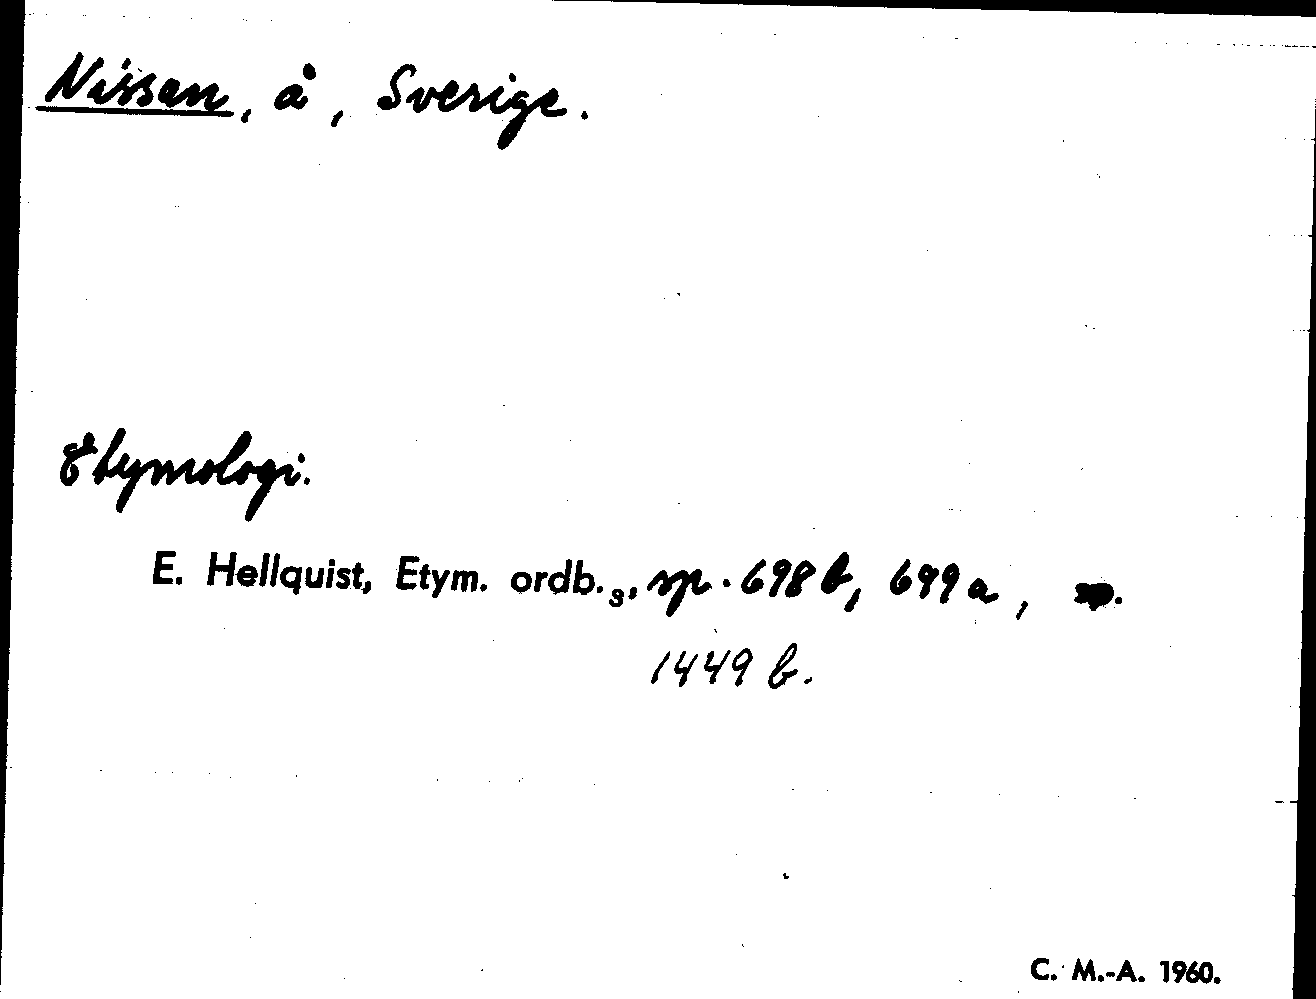 Nissan, å, Sverige.
Etymologi.
E. Hellquist, Etym. ordb.3, sp. 698 b, 699 a,
1449 b.
C. M.-A. 1960.